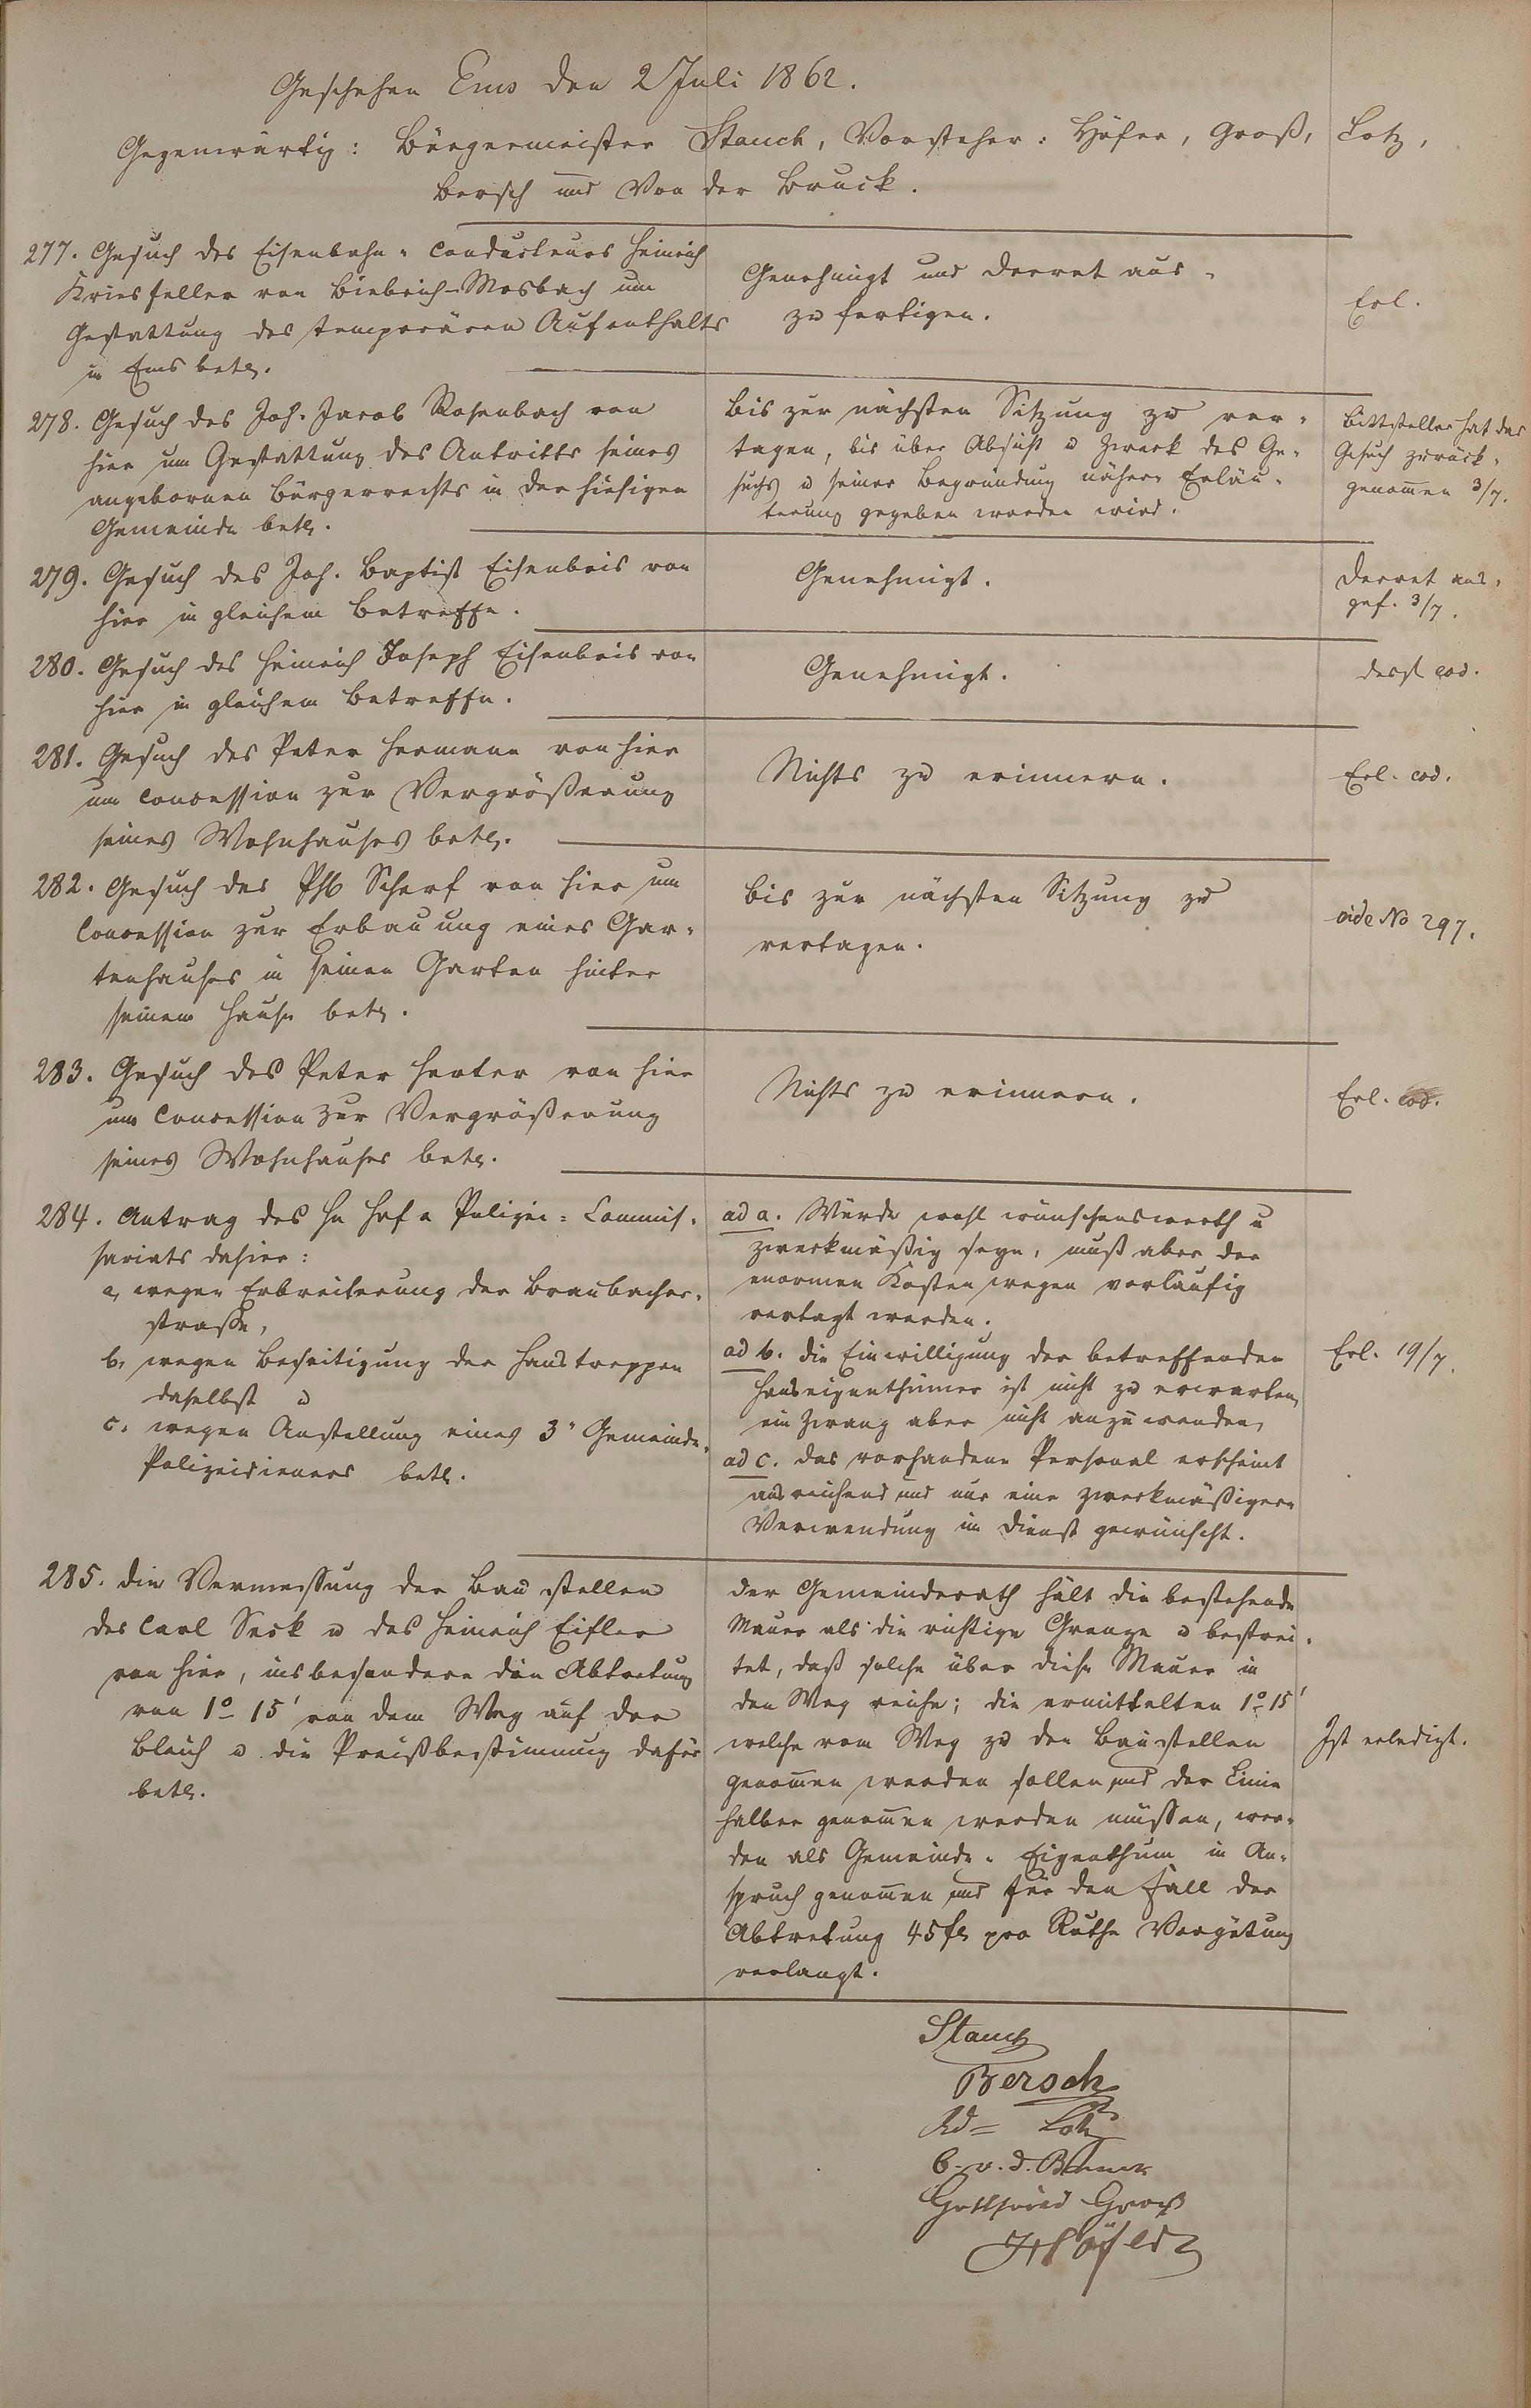 Geschehen Ems den 2 Juli 1862.
Gegenwärtig: Bürgermeister Stauch, Vorsteher: Höfer, Groß, Lotz,
Bersch und Von der Bruck.
277. Gesuch des Eisenbahn-Conducteurs Heinrich
Kriesfeller von Biebrich-Mosbach um
Gestattung des temporären Aufenthalts
in Ems betr.
Genehmigt und Decret aus-
zu fertigen.
Erl.
278. Gesuch des Joh. Jacob Rosenbach von
hier um Gestattung des Antritts seines
angebornen Bürgerrechts in der hiesigen
Gemeinde betr.
Bis zur nächsten Sitzung zu ver-
tagen, bis über Absicht u Zweck des Ge-
suchs u seiner Begründung nähere Erläu-
terung gegeben worden wird.
Bittsteller hat das
Gesuch zurück-
genom̅en 3/7.
279. Gesuch des Joh. Baptist Eisenbeis von
hier in gleichem Betreffe.
Genehmigt.
Decret aus-
gef. 3/7.
280. Gesuch des Heinrich Joseph Eisenbeis von
hier in gleichem Betreffe.
Genehmigt.
desgl eod.
281. Gesuch des Peter Hermann von hier
um Concession zur Vergrößerung
seines Wohnhauses betr.
Nichts zu erinnern.
Erl. eod.
282. Gesuch des Phl Scharf von hier um
Concession zur Erbauung eines Gar-
tenhauses in seinen Garten hinter
seinem Hause betr.
Bis zur nächsten Sitzung zu
vertagen.
vide No 297.
283. Gesuch des Peter Herter von hier
um Concession zur Vergrößerung
seines Wohnhauses betr.
Nichts zu erinnern.
Erl. eod.
284. Antrag des Hn Polizei-Commis-
sariats dahier:
a, wegen Erbreiterung der Braubacher-
straße,
b, wegen Beseitigung der Haustreppen
daselbst u
c, wegen Anstellung eines 3n Gemeinde-
Polizeidieners betr.
ad a. Würde wohl wünschenswerth u
zweckmäßig seyn, muß aber der
enormen Kosten wegen vorläufig
vertagt werden.
ad b. die Einwilligung der betreffenden
Hauseigenthümer ist nicht zu erwarten,
ein Zwang aber nicht anzuwenden,
ad c. das vorhandene Personal erscheint
ausreichend und nur eine zweckmäßigere
Verwendung im Dienst gewünscht.
Erl. 19/7.
285. die Vermessung der Baustellen
des Carl Seck u des Heinrich Eifler
von hier, insbesondere die Abtretung
von 1° 15' von dem Weg auf der
Bleich u die Preißbestimmung dafür
betr.
der Gemeinderath hält die bestehende
Mauer als die richtige Grenze u bestrei-
tet, daß solche über diese Mauer in
den Weg reiche; die ermittelten 1° 15'
welche vom Weg zu den Baustellen
genom̅en werden sollen und der Linie
halber genom̅en werden müssen, wer-
den als Gemeinde-Eigenthum in An-
spruch genom̅en und für den Fall der
Abtretung 45 fl pro Ruthe Vergütung
verlangt.
Ist erledigt.
Stauch
Bersch
Ad= Lotz
C. v. d. Bruck
Gottfried Groß
Höfer